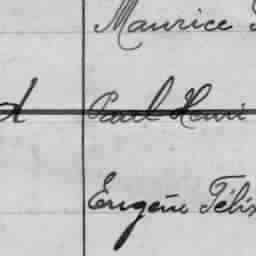 Maurice
d Paul Henri
Eugène Félix